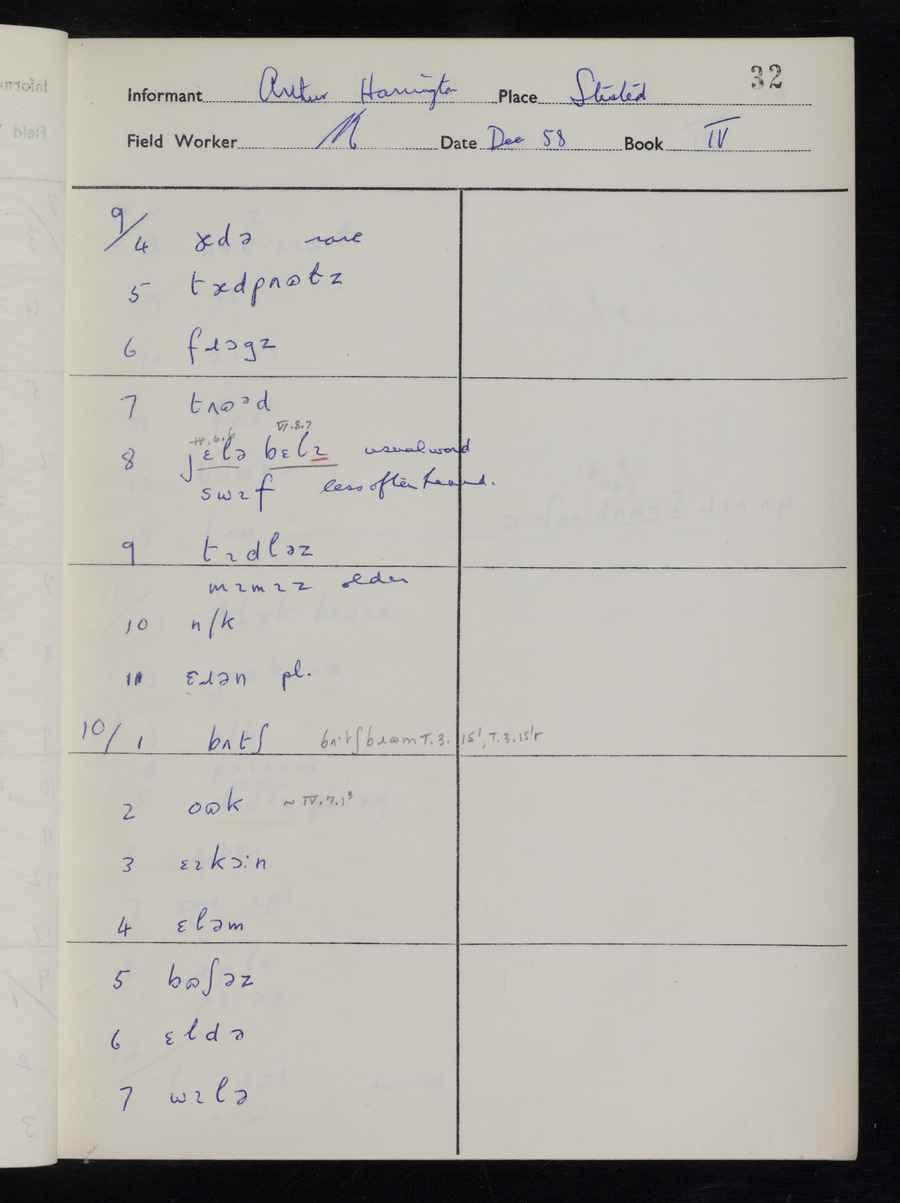 32
Informant Arthur Harrington Place Stisted
Field Worker Date Dec 58 Book IV
9/4 ædə rare
5 tædpʌɷtz
6 fɹɔgz
7 tʌɷəd
IV.6.6 VI.8.7
8 jɛlə bɛlɪ usual word
swɪf less often heard.
9 tɪdləz
mɪmɪz older
10 n/k
11 ɛɹən pl.
10/1 bʌtʃ bʌˑtʃbɹɷm T.3.15', T.3.15'r
2 oɷk ~ IV.7.1³
3 ɛɪkɔːn
4 ɛləm
5 bɷʃəz
6 ɛldə
7 wɪlə